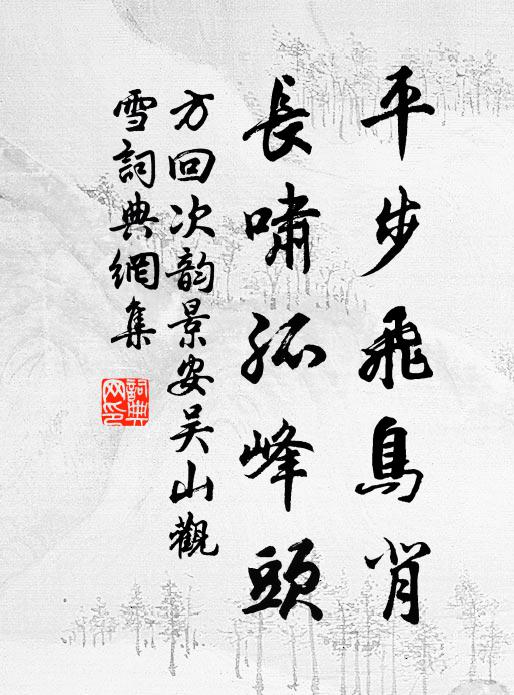 平步飛鳥背
長嘯孤峰頭
方回次韵景安吴山觀
雪詞典網集
詞典
网印